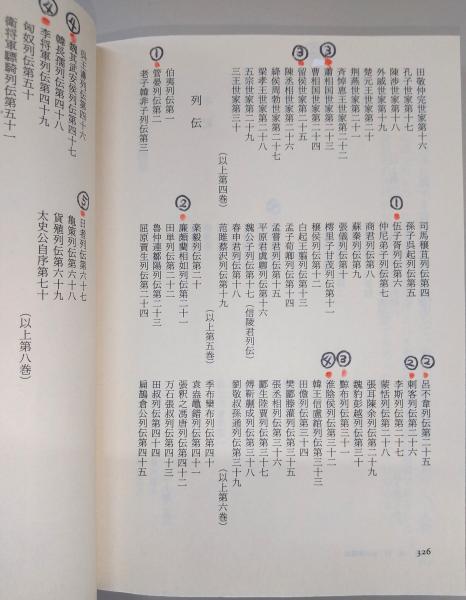 田敬仲完世家第十六
孔子世家第十七
陳渉世家第十八
外戚世家第十九
楚元王世家第二十
荊燕世家第二十一
斉悼恵王世家第二十二
③蕭相国世家第二十三
曹相国世家第二十四
③留侯世家第二十五
陳丞相世家第二十六
絳侯周勃世家第二十七
梁孝王世家第二十八
五宗世家第二十九
三王世家第三十
（以上第四巻）
列伝
伯夷列伝第一
①管晏列伝第二
老子韓非子列伝第三
司馬穣苴列伝第四
孫子呉起列伝第五
①伍子胥列伝第六
仲尼弟子列伝第七
商君列伝第八
蘇秦列伝第九
張儀列伝第十
樗里子甘茂列伝第十一
穣侯列伝第十二
白起王翦列伝第十三
孟子荀卿列伝第十四
孟嘗君列伝第十五
平原君虞卿列伝第十六
魏公子列伝第十七（信陵君列伝）
春申君列伝第十八
范雎蔡沢列伝第十九
（以上第五巻）
楽毅列伝第二十
②廉頗藺相如列伝第二十一
田単列伝第二十二
魯仲連鄒陽列伝第二十三
屈原賈生列伝第二十四
②呂不韋列伝第二十五
②刺客列伝第二十六
李斯列伝第二十七
蒙恬列伝第二十八
張耳陳余列伝第二十九
魏豹彭越列伝第三十
③黥布列伝第三十一
④淮陰侯列伝第三十二
韓王信盧綰列伝第三十三
田儋列伝第三十四
樊酈滕灌列伝第三十五
張丞相列伝第三十六
酈生陸賈列伝第三十七
傅靳蒯成列伝第三十八
劉敬叔孫通列伝第三十九
（以上第六巻）
季布欒布列伝第四十
袁盎鼂錯列伝第四十一
張釈之馮唐列伝第四十二
万石張叔列伝第四十三
田叔列伝第四十四
扁鵲倉公列伝第四十五
326
呉王濞列伝第四十六
④魏其武安侯列伝第四十七
韓長孺列伝第四十八
④李将軍列伝第四十九
匈奴列伝第五十
衛将軍驃騎列伝第五十一
⑤日者列伝第六十七
亀策列伝第六十八
貨殖列伝第六十九
太史公自序第七十
（以上第八巻）